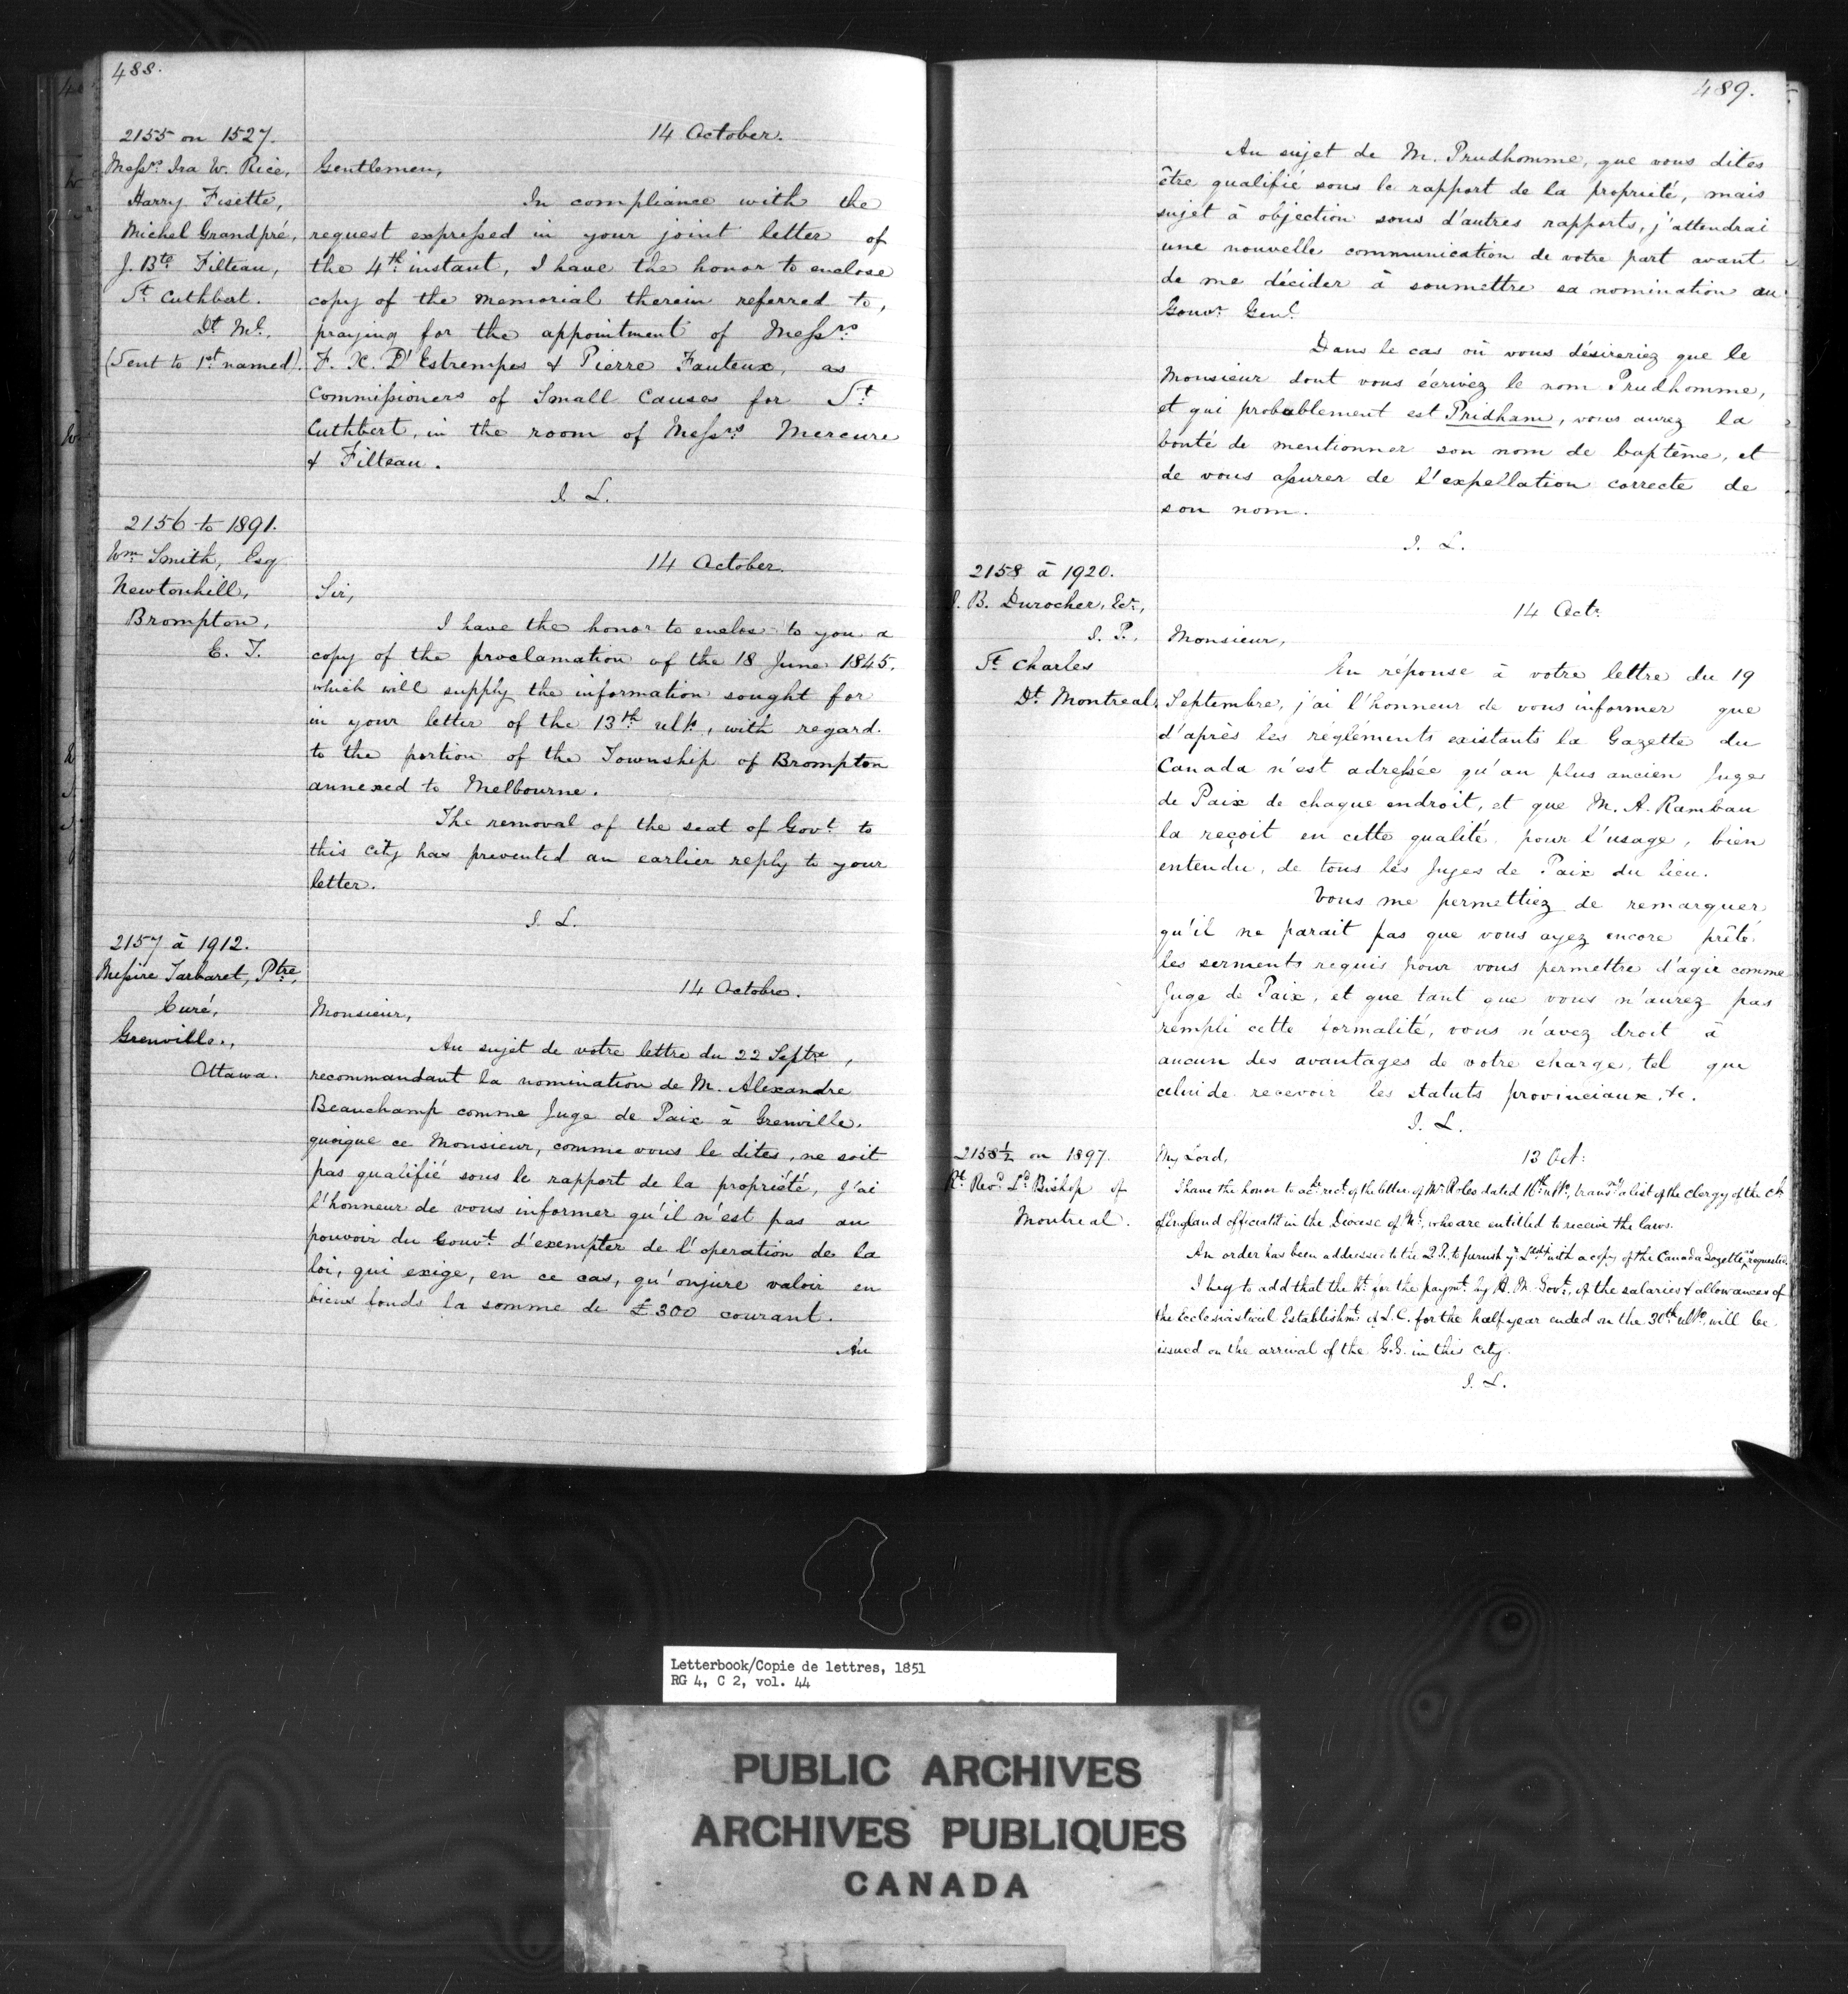 488.
2155 on 1527.
Messrs. Ira W. Rice,
Harry Fisette,
Michel Grandpré,
J. Bte Filteau,
St Cuthbert.
Dt Ml.
(Sent to 1st named).
14 October.
Gentlemen,
In compliance with the
request expressed in your joint letter of
the 4th instant, I have the honor to enclose
copy of the memorial therein referred to,
praying for the appointment of Messrs
F. X. D'Estrempes & Pierre Fauteux, as
Commissioners of Small Causes for St
Cuthbert, in the room of Messrs Mercure
& Filteau.
J. L.
2156 to 1891.
Wm Smith, Esq
Newtonhill,
Brompton,
E. T.
14 October.
Sir,
I have the honor to enclose to you a
copy of the proclamation of the 18 June 1845.
which will supply the information sought for
in your letter of the 13th ulto, with regard
to the portion of the Township of Brompton
annexed to Melbourne.
The removal of the seat of Govt to
this city has prevented an earlier reply to your
letter.
J. L.
2157 à 1912.
Messire Tarbaret, Ptre,
Curé,
Grenville.,
Ottawa.
14 Octobre.
Monsieur,
Au sujet de votre lettre du 22 Septre,
recommandant la nomination de M. Alexandre
Beauchamp comme Juge de Paix à Grenville.
quoique ce Monsieur, comme vous le dites, ne soit
pas qualifié sous le rapport de la propriété, j'ai
l'honneur de vous informer qu'il n'est pas au
pouvoir du Gouvt d'exempter de l'operation de la
loi, qui exige, en ce cas, qu'onjure valoir en
biens fonds la somme de £300 courant.
Au
489.
Au sujet de M. Prudhomme, que vous dites
être qualifié sous le rapport de la propriété, mais
sujet à objection sous d'autres rapports, j'attendrai
une nouvelle communication de votre part avant
de me décider à soumettre sa nomination au
Gouvr Genl.
Dans le cas où vous désireriez que le
Monsieur dont vous écrivez le nom Prudhomme,
et qui probablement est Pridham, vous aurez la
bonté de mentionner son nom de baptême, et
de vous assurer de l'expellation correcte de
son nom.
J. L.
2158 à 1920.
J. B. Durocher, Ecr,
J. P.
St Charles
Dt Montreal.
14 Octr
Monsieur,
En réponse à votre lettre du 19
Septembre, j'ai l'honneur de vous informer que
d'après les réglements existants la Gazette du
Canada n'est adressée qu'au plus ancien Juge
de Paix de chaque endroit, et que M. A. Rambau
la reçoit en cette qualité pour l'usage, bien
entendu, de tous les Juges de Paix du lieu.
Vous me permettiez de remarquer
qu'il ne parait pas que vous ayez encore prêté
les serments requis pour vous permettre d'agir comme
Juge de Paix, et que tant que vous n'aurez pas
rempli cette formalité, vous n'avez droit à
aucun des avantages de votre charge, tel que
celui de recevoir les statuts provinciaux, &c.
J. L.
2158½ on 1897.
Rt Revd Ld Bishop of
Montreal.
My Lord,
13 Oct:
I have the honor to ackte rect of the letter of Mr Roles dated 16th ulto, transg a list of the Clergy of the Ch
of England officiatg in the Diocese of Ml, who are entitled to receive the laws.
An order has been addressed to the Q. P. to furnish yr Lordp with a copy of the Canada Gazette, as requested.
I beg to add that the Wt for the paymt by H. M. Govt, of the salaries & allowances of
the Ecclesiastical Establishmt of L. C. for the half year ended on the 30th ulto, will be
issued on the arrival of the G.G. in this city.
J. L.
Letterbook/Copie de lettres, 1851
RG 4, C 2, vol. 44
PUBLIC ARCHIVES
ARCHIVES PUBLIQUES
CANADA